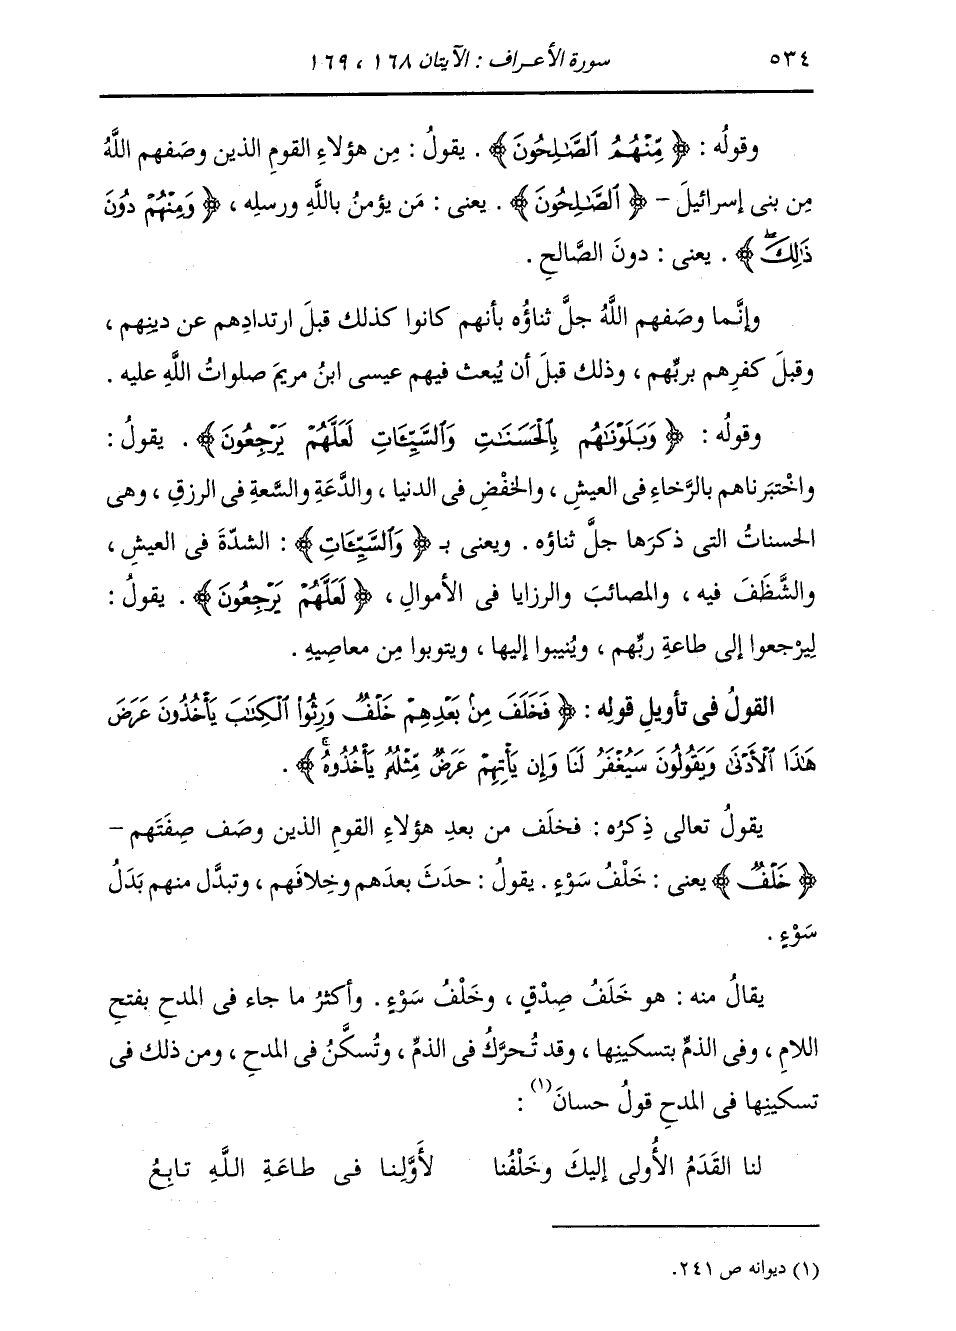 ٥٣٤ سورة الأعراف : الآيتان ١٦٨ ، ١٦٩
وقولُه : ﴿ مِّنْهُمُ ٱلصَّٰلِحُونَ ﴾ . يقولُ : مِن هؤلاءِ القومِ الذين وصَفهم اللَّهُ
مِن بنى إسرائيلَ - ﴿ ٱلصَّٰلِحُونَ ﴾ . يعنى : مَن يؤمنُ باللَّهِ ورسلِه ، ﴿ وَمِنْهُمْ دُونَ
ذَٰلِكَۖ ﴾ . يعنى : دونَ الصَّالحِ .
وإنَّما وصَفهم اللَّهُ جلَّ ثناؤُه بأنهم كانوا كذلك قبلَ ارتدادِهم عن دينِهم ،
وقبلَ كفرِهم بربِّهم ، وذلك قبلَ أن يُبعث فيهم عيسى ابنُ مريمَ صلواتُ اللَّهِ عليه .
وقولُه : ﴿ وَبَلَوْنَٰهُم بِٱلْحَسَنَٰتِ وَٱلسَّيِّـَٔاتِ لَعَلَّهُمْ يَرْجِعُونَ ﴾ . يقولُ :
واخْتبَرناهم بالرَّخاءِ فى العيشِ ، والخفْضِ فى الدنيا ، والدَّعَةِ والسَّعةِ فى الرزقِ ، وهى
الحسناتُ التى ذكرَها جلَّ ثناؤه . ويعنى بـ ﴿ وَٱلسَّيِّـَٔاتِ ﴾ : الشدّةَ فى العيشِ ،
والشَّظَفَ فيه ، والمصائبَ والرزايا فى الأموالِ ، ﴿ لَعَلَّهُمْ يَرْجِعُونَ ﴾ . يقولُ :
لِيرْجعوا إلى طاعةِ ربِّهم ، ويُنيبوا إليها ، ويتوبوا مِن معاصِيهِ .
القولُ فى تأويلِ قولِه : ﴿ فَخَلَفَ مِنۢ بَعْدِهِمْ خَلْفٌ وَرِثُوا۟ ٱلْكِتَٰبَ يَأْخُذُونَ عَرَضَ
هَٰذَا ٱلْأَدْنَىٰ وَيَقُولُونَ سَيُغْفَرُ لَنَا وَإِن يَأْتِهِمْ عَرَضٌ مِّثْلُهُۥ يَأْخُذُوهُۚ ﴾ .
يقولُ تعالى ذِكرُه : فخلَف من بعدِ هؤلاءِ القومِ الذين وصَف صِفتَهم -
﴿ خَلْفٌ ﴾ يعنى : خَلْفُ سَوْءٍ . يقولُ : حدَثَ بعدَهم وخِلافَهم ، وتبدَّل منهم بَدَلُ
سَوْءٍ .
يقالُ منه : هو خَلَفُ صِدْقٍ ، وخَلْفُ سَوْءٍ . وأكثرُ ما جاء فى المدحِ بفتحِ
اللامِ ، وفى الذمِّ بتسكينِها ، وقد تُحرَّكُ فى الذمِّ ، وتُسكَّنُ فى المدحِ ، ومن ذلك فى
تسكينِها فى المدحِ قولُ حسانَ(١) :
لنا القَدَمُ الأُولى إليكَ وخَلْفُنا لأَوَّلِنا فى طاعَةِ اللَّهِ تابِعُ
(١) ديوانه ص ٢٤١.